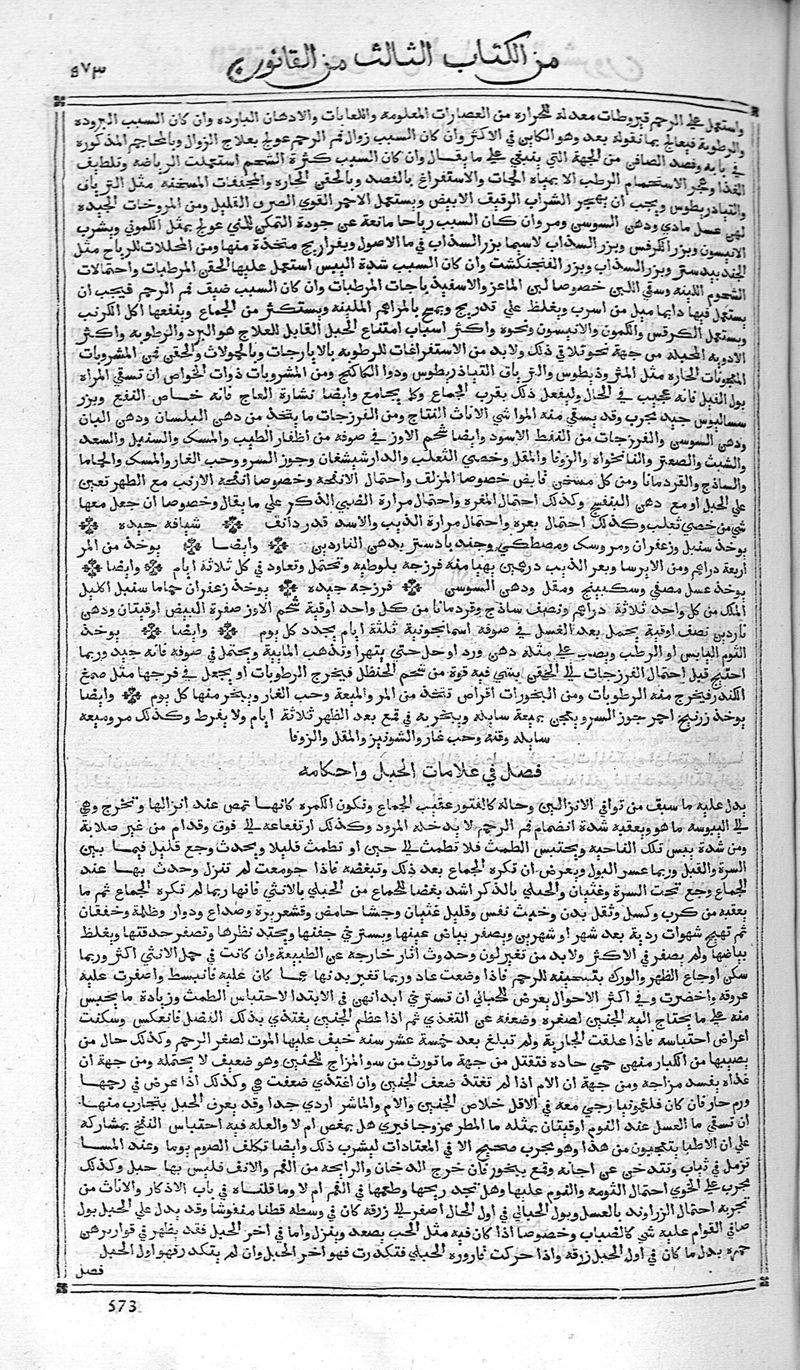 ٥٧٣ من الكتاب الثالث من القانون
واستعمل على الرحم قيروطات معدلة للحرارة من العصارات المعلومه واللعابات والادهان البارده وان كان السبب البروده
والرطوبة فيعالج بما نقوله بعد وهو الكاين في الاكثر وان كان السبب زوال فم الرحم عولج بعلاج الزوال وبالمحاجم المذكوره
في بابه وفصد الصافن من الجهة التي ينبغي على ما يقال وان كان السبب كثرة الشحم استعملت الرياضه وتلطيف
الغذا وهجر الاستحمام الرطب الا بمياه الحمات والاستفراغ بالفصد وبالحقن الحاره والمجففات المسخنه مثل الترياق
والتيادريطوس ويجب ان يهجر الشراب الرقيف الابيض ويستعمل الاحمر القوي الصرف القليل ومن المروخات الجيده
لهن عسل مادي ودهن السوسن ومر وان كان السبب رياحا مانعة عن جودة التمكن للمني عولج بمثل الكموني وبشرب
الانيسون وبزر الكرفس وبزر السذاب لاسيما بزر السذاب في ما الاصول وبفراريج متخذة منها ومن المحللات للرياح مثل
الجندبيدستر وبزر السذاب وبزر الفنجنكشت وان كان السبب شدة اليبس استعمل عليها الحقن المرطبات واحتمالات
الشحوم اللينه وسقي اللبن خصوصا لبن الماعز والاسفيذباجات المرطبات وان كان السبب ضيف فم الرحم فيجب ان
يستعمل فيها دايما ميل من اسرب ويغلظ على تدريج ويمسح بالمراهم الملينه ويستكثر من الجماع وينفعها اكل الكرنب
ويستعمل الكرفس والكمون والانيسون ونحوه واكثر اسباب امتناع الحبل القابل للعلاج هو البرد والرطوبه واكثر
الادويه المحبلة من جهة نحو تلافي ذلك ولا بد من الاستفراغات للرطوبه بالايارجات وبالحمولات والحقن فمن المشروبات
المعجونات الحاره مثل المثروذيطوس والترياق التيادريطوس ودوا الكاكنج ومن المشروبات ذوات الخواص ان تسقي المراة
بول الفيل فانه عجيب في الحال وليفعل ذلك بقرب الجماع وكما يجامع وايضا نشارة العاج فانه حاض النفع وبزر
سساليوس جيد مجرب وقد يسقي منه المواشي الاناث الفتاج ومن الفرزجات ما يتخذ من دهن البلسان ودهن البان
ودهن السوسن والفرزجات من النفط الاسود وايضا شحم الاوز في صوفه من اظفار الطيب والمسك والسنبل والسعد
والشبث والصعتر والنانخواه والزوفا والمقل وخصي الثعلب والدارشيشغان وجوز السرو وحب الغار والمسك والحماما
والساذج والقردمانا ومن كل مسخن قابض خصوصا المزلف واحتمال الانفحه وخصوصا انفحة الارنب مع الطهر تعين
على الحبل او مع دهن البنفسج وكذلك احتمال المغره واحتمال مرارة الضبي الذكر على ما يقال وخصوصا ان جعل معها
شي من خصي ثعلب وكذلك احتمال بعره واحتمال مرارة الذيب والاسد قدر دانف ❊ شيافه جيده ❊
يوخذ سنبل وزعفران ومر وسك ومصطكي وجندبادستر بدهن الناردين ❊ وايضا ❊ يوخذ من المر
اربعة دراهم ومن الايرسا وبعر الذيب درهمين يهيا منه فرزجه بلوطيه وتحتمل وتعاود في كل ثلاثة ايام ❊ وايضا ❊
يوخذ عسل مصفي وسكبينج ومقل ودهن السوسن ❊ فرزجه جيده ❊ يوخذ زعفران حماما سنبل اكليل
الملك من كل واحد ثلاثة دراهم ونصف ساذج وقردمانا من كل واحد اوقية شحم الاوز صفرة البيض اوقيتان ودهن
ناردين نصف اوقية يحمل بعد الغسل في صوفه اسمانجونية ثلثة ايام يجدد كل يوم ❊ وايضا ❊ يوخذ
الثوم اليابس او الرطب ويصب على مثله دهن ورد او حل حتي يتهرا وتذهب المايية ويحتمل في صوفه فانه جيد وربما
احتيج قبل احتمال الفرزجات الي الحقن بشي فيه قوة من شحم الحنظل فيخرج الرطوبات او يجعل في فرجها مثل صمغ
الكندر فيخرج منه الرطوبات ومن البخورات اقراص تتخذ من المر والميعة وحب الغار ويبخر منها كل يوم ❊ وايضا
يوخذ زرنيخ احمر جوز السرو يعجن بميعة سايله ويتبخر به في قمع بعد الطهر ثلاثة ايام ولا يفرط وكذلك مر وميعه
سايله وقنه وحب غار والشونيز والمقل والزوفا
فصل في علامات الحبل واحكامه
يدل عليه ما سبف من توافي الانزالين وحالة كالفتور عقيب الجماع وتكون الكمره كانها تمص عند انزالها وتخرج وهي
الي اليبوسه ما هو ويعقبه شدة انضمام فم الرحم لا يدخله المرود وكذلك ارتفاعه الي فوق وقدام من غير صلابة
ومن شدة يبس تلك الناحيه ويحتبس الطمث فلا تطمث الي حين او تطمث قليلا ويحدث وجع قليل فيما بين
السرة والقبل وربما عسر البول ويعرض ان تكره الجماع بعد ذلك وتبغضه فاذا جومعت لم تنزل وحدث بها عند
الجماع وجع تحت السرة وغثيان والحبلي بالذكر اشد بغضا للجماع من الحبلي بالانثي فانها ربما لم تكره الجماع ثم ما
يعقبه من كرب وكسل وثقل بدن وخبث نفس وقليل غثيان وجشا حامض وقشعريرة وصداع ودوار وظلمة وخفقان
ثم تهيج شهوات ردية بعد شهر او شهرين ويصفر بياض عينها ويسترخي جفنها ويحتد نظرها وتصفر حدقتها ويغلظ
بياضها ولم يصفر في الاكثر ولا بد من تغير لون وحدوث اثار خارجه عن الطبيعة وان كانت في حمل الانثي اكثر وربما
سكن اوجاع الظهر والورك بتسخينه للرحم فاذا وضعت عاد وربما تغير بدنها عما كان عليه فانبسط واصفرت عليه
عروقه واخضرت وفي اكثر الاحوال يعرض للحبالي ان تسترخي ابدانهن في الابتدا لاحتباس الطمث وزيادة ما يحبس
منه على ما يحتاج اليه الجنين لصغره وضعفه عن التغذي ثم اذا عظم الجنين يغتذي بذلك الفضل فانعكس وسكنت
اعراض احتباسه فاذا علقت الجارية ولم تبلغ بعد خمسة عشر سنه خيف عليها الموت لصغر الرحم وكذلك حال من
يصيبها من الكبار منهن حمي حاده فتقتل من جهة ما تورث من سو المزاج للجنين وهو ضعيف لا يحتمله ومن جهة ان
غذاه يفسد مزاجه ومن جهة ان الام اذا لم تغتذ ضعف الجنين وان اغتذي ضعفت هي وكذلك اذا عرض في رحمها
ورم حار فان كان فلغمونيا رجي معه في الاقل خلاص الجنين والام والماشر اردي جدا وقد يعرف الحبل بتجارب منها
ان تسقي ما العسل عند النوم اوقيتان بمثله ما المطر ممزوجا فيري هل يمغص ام لا والعله فيه احتباس النفخ بمشاركه
على ان الاطبا يتعجبون من هذا وهو مجرب صحيح الا في المعتادات لشرب ذلك وايضا تكلف الصوم يوما وعند المسا
تزمل في ثياب وتتدخن عن اجانه وقمع ببخور فان خرج الدخان والرايحه من الفم والانف فليس بها حبل وكذلك
مجرب على الخوي احتمال الثومه والنوم عليها وهل تجد ريحها وطعمها في الفم ام لا وما قلناه في باب الاذكار والاناث من
تجربه احتمال الزراوند بالعسل وبول الحبالي في اول الحال اصفر الي زرقه كان في وسطه قطنا منفوشا وقد يدل على الحبل بول
صافي القوام عليه شي كالضباب وخصوصا اذا كان فيه مثل الحب يصعد وينزل واما في اخر الحبل فقد يظهر في قواريرهن
حمره بدل ما كان في اول الحبل زرقه واذا حركت قاروره الحبلي فتكدرت فهو اخر الحبل وان لم يتكدر فهو اول الحبل
فصل
573